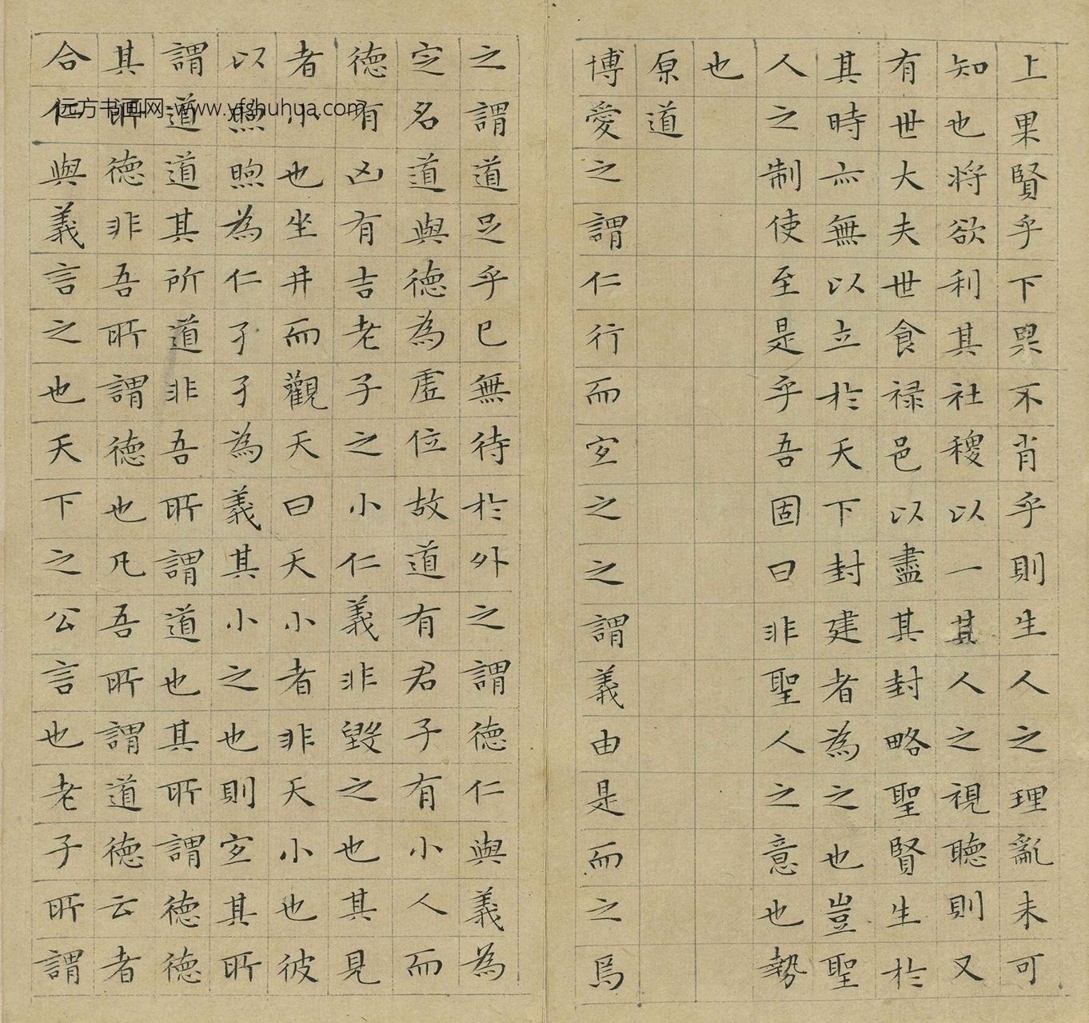 上果賢乎下果不肖乎則生人之理亂未可
知也将欲利其社稷以一其人之視聽則又
有世大夫世食禄邑以盡其封略聖賢生於
其時亦無以立於天下封建者為之也豈聖
人之制使至是乎吾固曰非聖人之意也勢
也
原道
博愛之謂仁行而宜之之謂義由是而之焉
之謂道足乎已無待於外之謂德仁與義為
定名道與德為虛位故道有君子有小人而
德有凶有吉老子之小仁義非毀之也其見
者小也坐井而觀天曰天小者非天小也彼
以煦煦為仁孑孑為義其小之也則宜其所
謂道道其所道非吾所謂道也其所謂德德
其所德非吾所謂德也凡吾所謂道德云者
合仁與義言之也天下之公言也老子所謂
远方书画网 www.yfshuhua.com